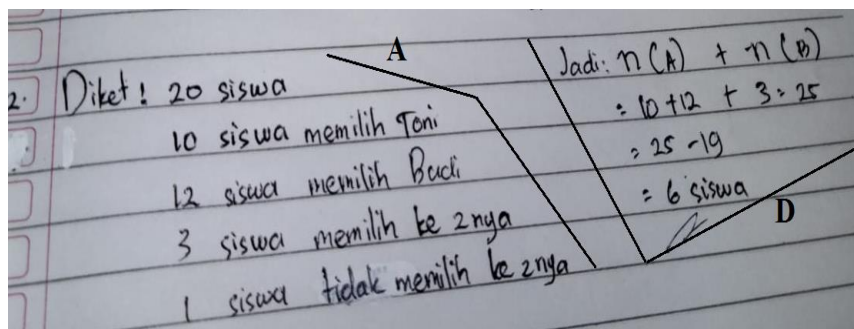 2. Diket! 20 siswa
10 siswa memilih Toni
12 siswa memilih Budi
3 siswa memilih ke 2nya
1 siswa tidak memilih ke 2nya
A
Jadi: n(A) + n(B)
= 10 + 12 + 3 = 25
= 25 - 19
= 6 siswa
D